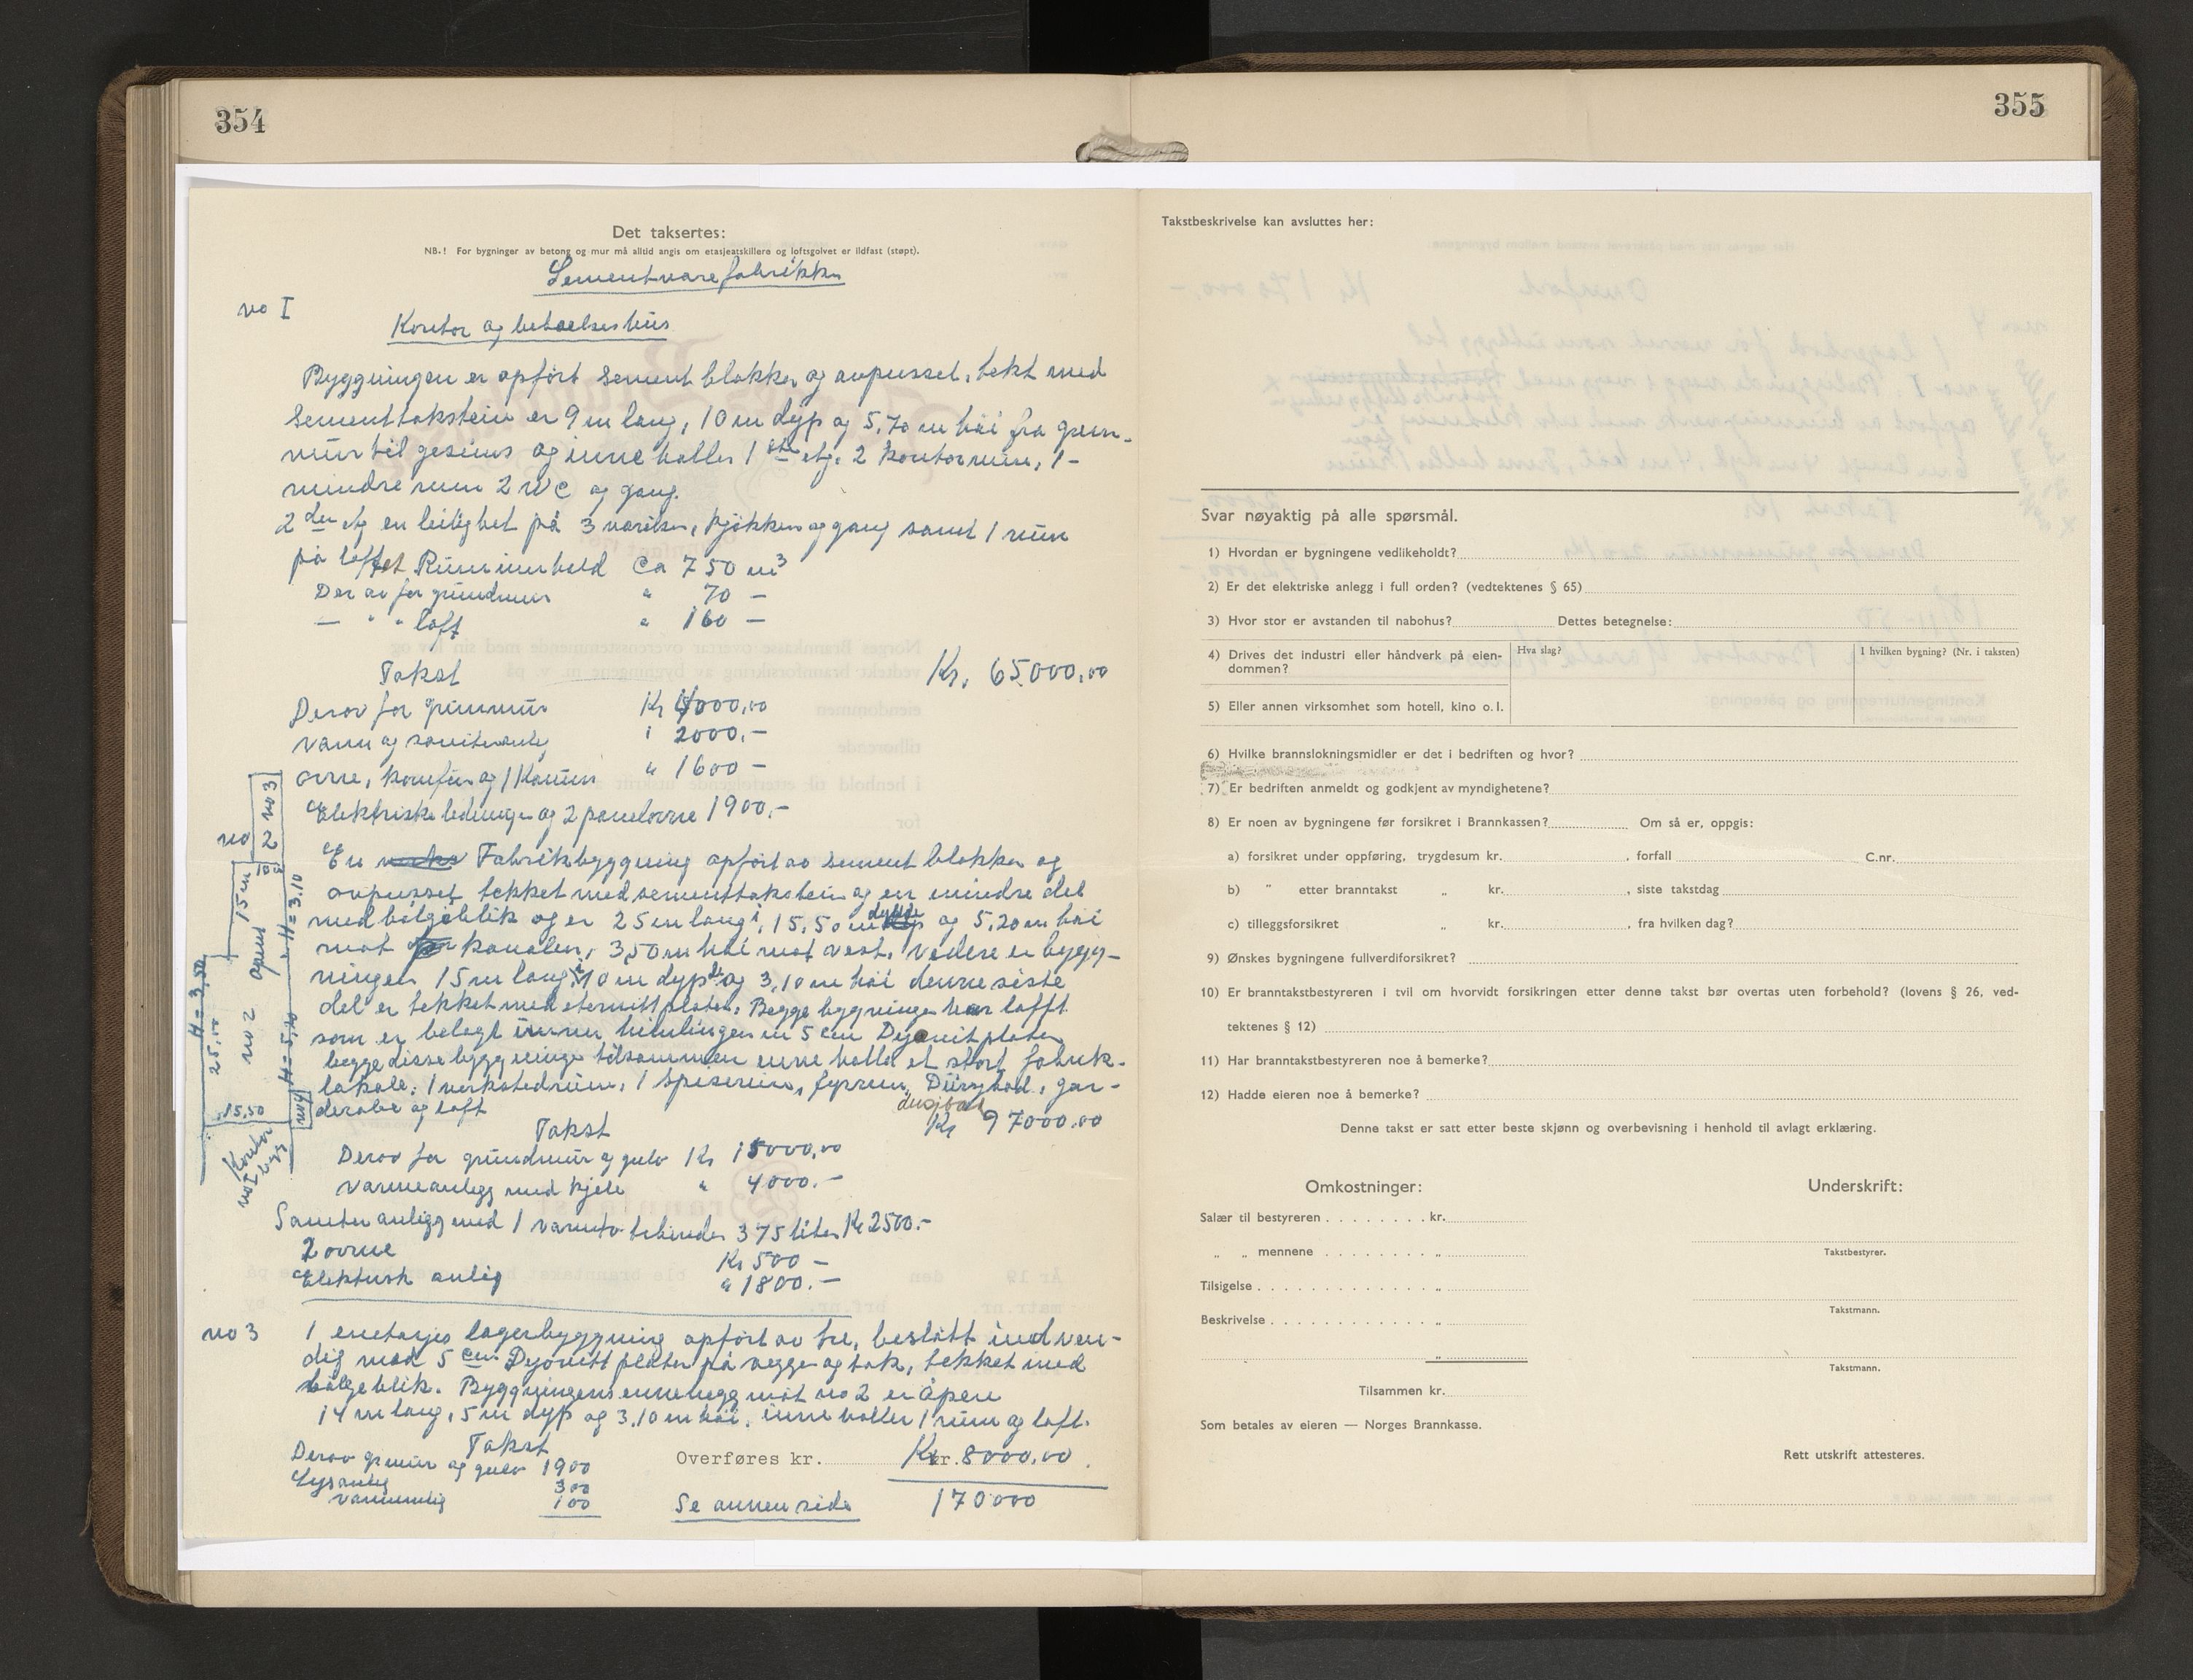 354
Det taksertes:
NB.! For bygninger av betong og mur må alltid angis om etasjeatskillere og loftsgolvet er ildfast (støpt).
Sementvarefabrikk
no I
Kontor og betjelseshus
Byggningen er opført Sement blokker og avpusset, tekt med
Sementtakstein er 9 m lang, 10 m dyp og 5,70 m høi fra grun-
mur til gesims og inneholler 1 ste etg. 2 kontorrum, 1-
mindre rum 2 W C og gang.
2 den etg en leilighet på 3 værelser, kjøkken og gang samt 1 rum
på loftet Ruminnhold Ca 750 m3
Der av for grundmur " 70 —
— " " loft " 160 —
Takst Kr. 65000,00
Derav for grunmur Kr 4000,00
vann og saniteranleg " 2000.—
ovne, komfur og 1 Kamin " 1600 —
Elektriske ledninger og 2 panelovne 1900.—
no 2
no 3
En Fabrikbyggning opført av sement blokker og
avpusset tekket med sementtakstein og en mindre del
med bølgeblik og er 25 m lang, 15,50 m dybde og 5,20 m høi
mot kanalen, 3,50 m høi mot vest. Videre er bygg-
ningen 15 m lang, 10 m dyp og 3,10 m høi denne siste
del er tekket med eternittplater. Begge bygninger har lofft
som er belagt innen himlingen m 5 cm Dyonitplater
begge disse byggninger tilsammen inne holler et stort fabrik-
lokale, 1 verkstedrum, 1 spiserum, fyrrum, Dusjbad, gar-
derobe og loft
dusjbad
Takst Kr 97000.00
Derav for grundmur og gulv Kr 15000,00
varmeanlegg med kjele " 4000.—
Saniteranlegg med 1 varmtv. beholder 375 liter Kr 2500.—
2 ovne Kr 500 —
Elektrisk anleg " 1800.—
H = 3,50
25,00
no 2
åpent
15 m
H = 5,20
H = 3.10
15,50
Kontor
bygg
no I
no 3
1 enetasjes lagerbyggning opført av tre, beslått indven-
dig med 5 cm Dyonitt plater på vegger og tak, tekket med
bølgeblik. Byggningens ennevegg mot no 2 er åpen
14 m lang, 5 m dyp og 3,10 m høi. inneholler 1 rum og loft.
Takst
Derav grmur og gulv 1900
Lysanleg 300
vannanleg 100
Overføres kr. Kr. 8000,00
Se annen side 170000
355
Takstbeskrivelse kan avsluttes her:
Svar nøyaktig på alle spørsmål.
1) Hvordan er bygningene vedlikeholdt?
2) Er det elektriske anlegg i full orden? (vedtektenes § 65)
3) Hvor stor er avstanden til nabohus? Dettes betegnelse:
4) Drives det industri eller håndverk på eien-
dommen?
Hva slag?
I hvilken bygning? (Nr. i taksten)
5) Eller annen virksomhet som hotell, kino o.l.
6) Hvilke brannslokningsmidler er det i bedriften og hvor?
7) Er bedriften anmeldt og godkjent av myndighetene?
8) Er noen av bygningene før forsikret i Brannkassen? Om så er, oppgis:
a) forsikret under oppføring, trygdesum kr. , forfall C.nr.
b) " etter branntakst „ kr. , siste takstdag
c) tilleggsforsikret „ kr. , fra hvilken dag?
9) Ønskes bygningene fullverdiforsikret?
10) Er branntakstbestyreren i tvil om hvorvidt forsikringen etter denne takst bør overtas uten forbehold? (lovens § 26, ved-
tektenes § 12)
11) Har branntakstbestyreren noe å bemerke?
12) Hadde eieren noe å bemerke?
Denne takst er satt etter beste skjønn og overbevisning i henhold til avlagt erklæring.
Omkostninger:
Salær til bestyreren . . . . . . . . kr.
„ „ mennene . . . . . . . . „
Tilsigelse . . . . . . . . . . . . . . „
Beskrivelse . . . . . . . . . . . . . „
„
Tilsammen kr.
Som betales av eieren — Norges Brannkasse.
Underskrift:
Takstbestyrer.
Takstmann.
Takstmann.
Rett utskrift attesteres.